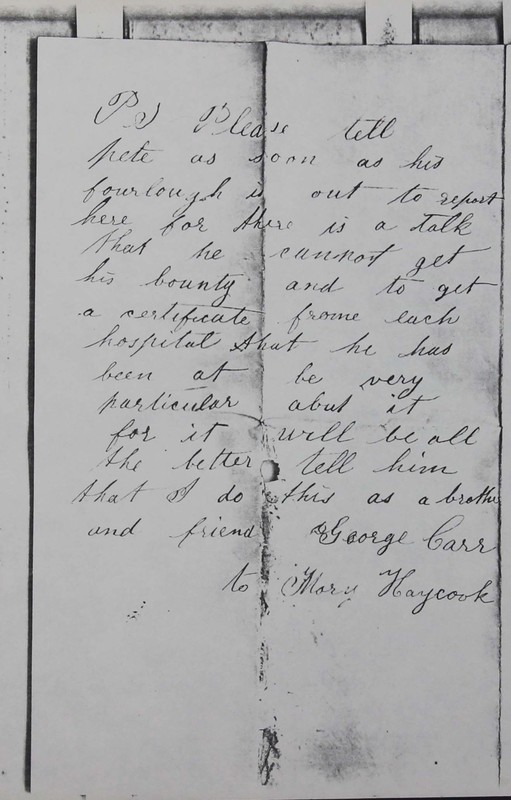 PS Please tell
pete as soon as his
fourlough is out to report
here for there is a talk
that he cannot get
his bounty and to get
a certificate frome each
hospital that he has
been at be very
particular abut it
for it will be all
the better tell him
that I do this as a brothe
and friend George Carr
to Mary Haycook